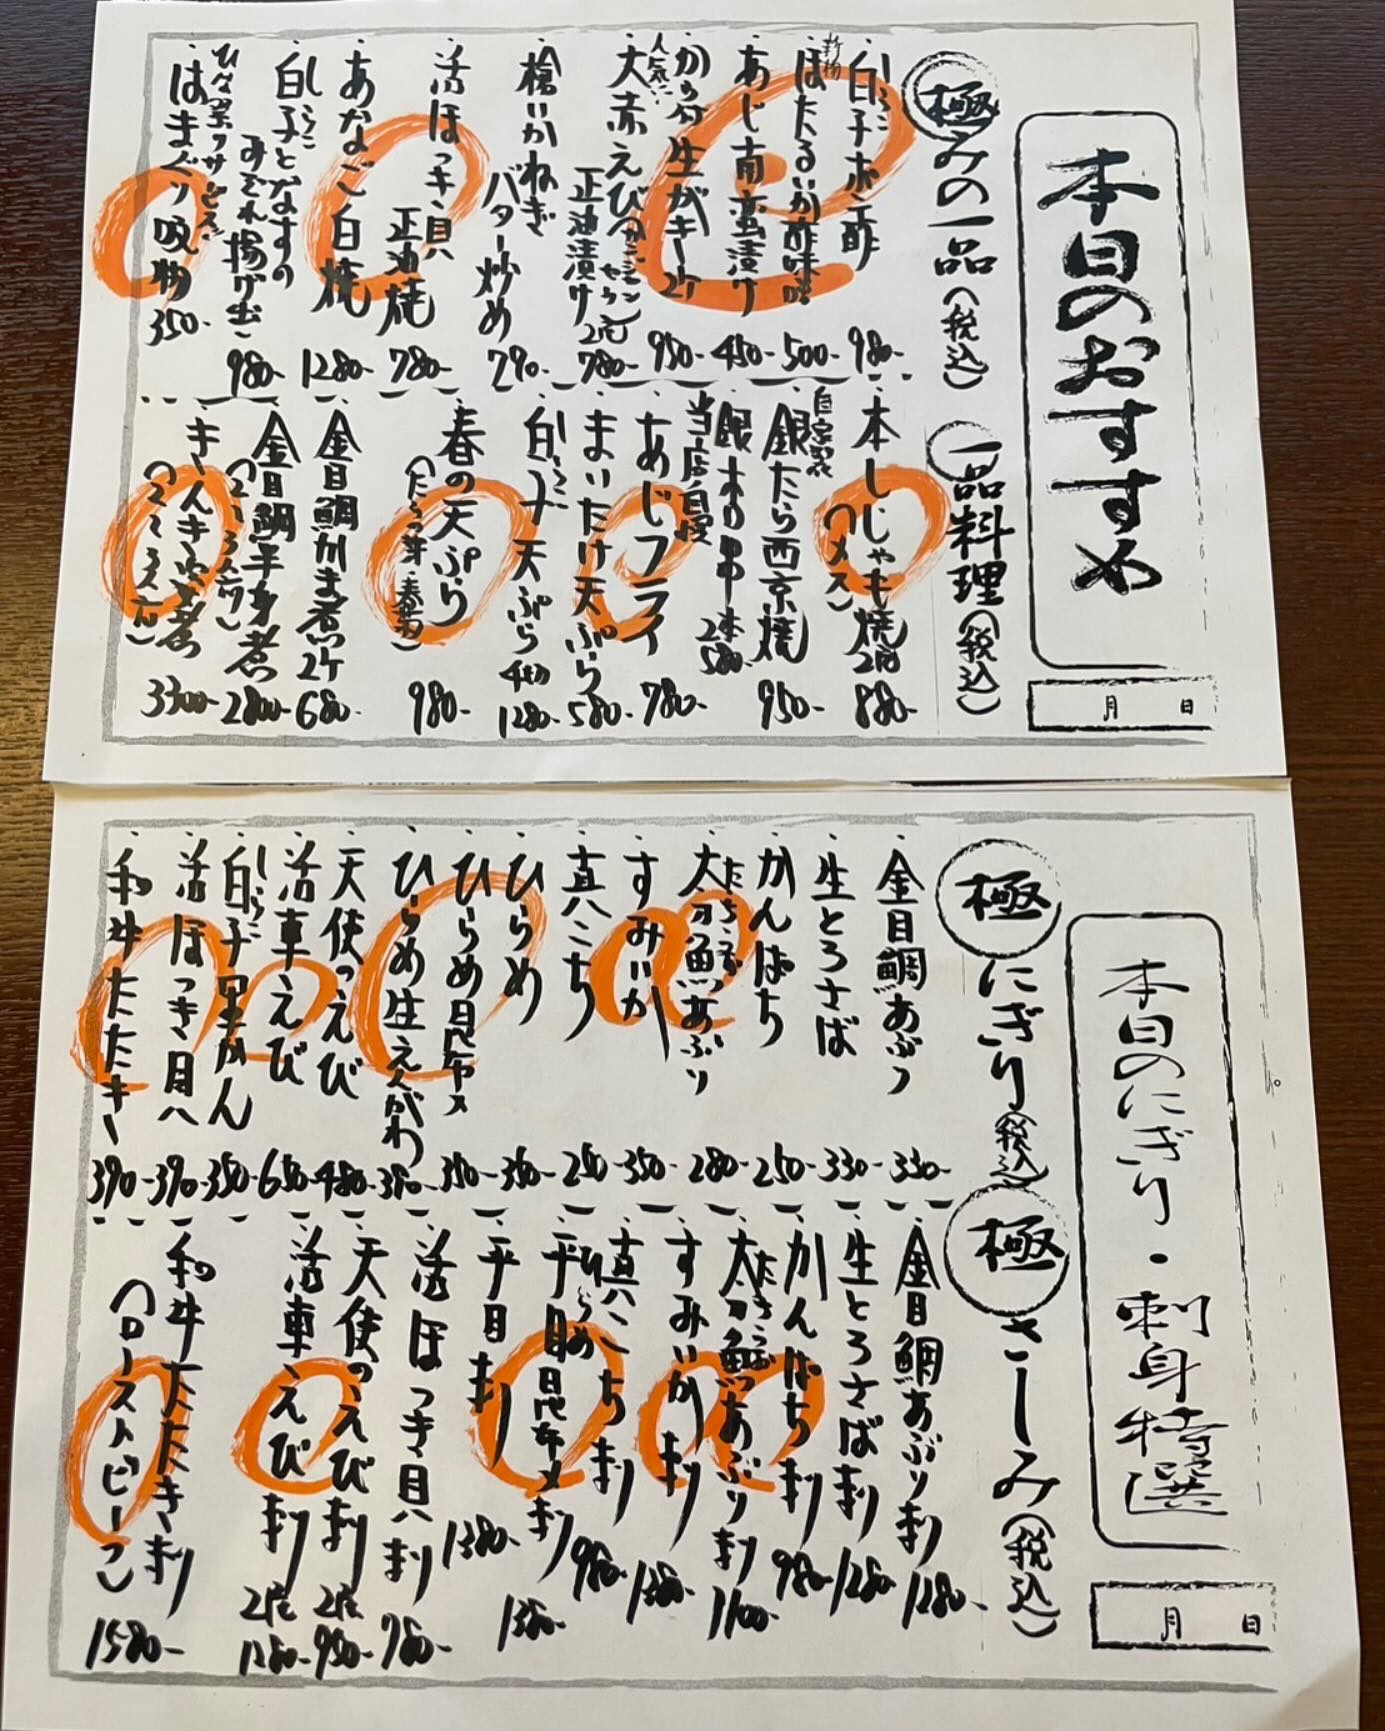 本日のおすすめ
月 日
極みの一品(税込)
しらこ
白子ポン酢 980-
ほたるいか酢味噌 500-
あじ南蛮漬け 450-
から付生がき 2ケ 950-
人気
大赤えび
正油漬け 2尾 780-
槍いかねぎ
バター炒め 790-
活ほっき貝
正油焼 780-
あなご白焼 1280-
しらこ
白子となすの
みぞれ揚げ出し 980-
はまぐり吸物 350-
一品料理(税込)
本ししゃも焼 2尾 880-
(メス)
自家製
銀たら西京焼 950-
銀杏串 2本 580-
当店自慢
あじフライ 780-
まいたけ天ぷら 580-
しらこ
白子天ぷら 4切 1280-
春の天ぷら 980-
(たらの芽・春菊)
金目鯛かま煮 2ケ 680-
金目鯛半身煮 2800-
きんき煮 3300-
本日のにぎり・刺身特選
月 日
極にぎり(税込)
金目鯛あぶり 330-
生とろさば 330-
かんぱち 250-
たちうお
太刀魚あぶり 280-
すみいか 350-
真こち 250-
ひらめ 350-
ひらめ昆布〆 350-
ひらめ生えんがわ 390-
天使のえび 480-
活車えび 650-
しらこ
白子軍かん 350-
活ほっき貝 390-
和牛たたき 390-
極さしみ(税込)
金目鯛あぶり刺 1280-
生とろさば刺 1280-
かんぱち刺 980-
たちうお
太刀魚あぶり刺 1100-
すみいか刺 1380-
真こち刺 980-
ひらめ
平目昆布〆刺 1380-
平目刺 1380-
活ほっき貝刺 780-
天使のえび刺 2尾 950-
活車えび刺 2尾 1280-
和牛たたき刺
(ローストビーフ) 1580-